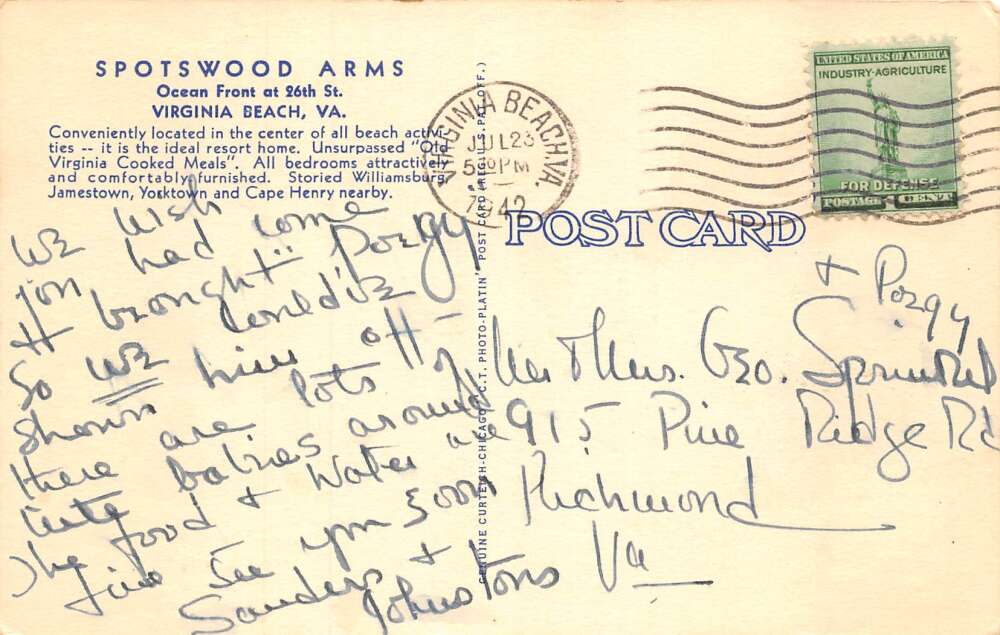 SPOTSWOOD ARMS
Ocean Front at 26th St.
VIRGINIA BEACH, VA.
Conveniently located in the center of all beach activi-
ties -- it is the ideal resort home. Unsurpassed "Old
Virginia Cooked Meals". All bedrooms attractively
and comfortably furnished. Storied Williamsburg,
Jamestown, Yorktown and Cape Henry nearby.
We wish
you had come
& brought "Poegy
So we could've
shown him off -
there are lots of
cute babies around
The food & water are
fine See you soon
Sanders &
Johnstons
GENUINE CURTEICH-CHICAGO "C.T. PHOTO-PLATIN" POST CARD (REG. U.S. PAT. OFF.)
VIRGINIA BEACH, VA.
JUL 23
5 30 PM
1942
UNITED STATES OF AMERICA
INDUSTRY-AGRICULTURE
FOR DEFENSE
POSTAGE 1 CENT
POST CARD
& Poegy
Mr & Mrs. Geo. Sprinkel
915 Pine Ridge Rd
Richmond
Va